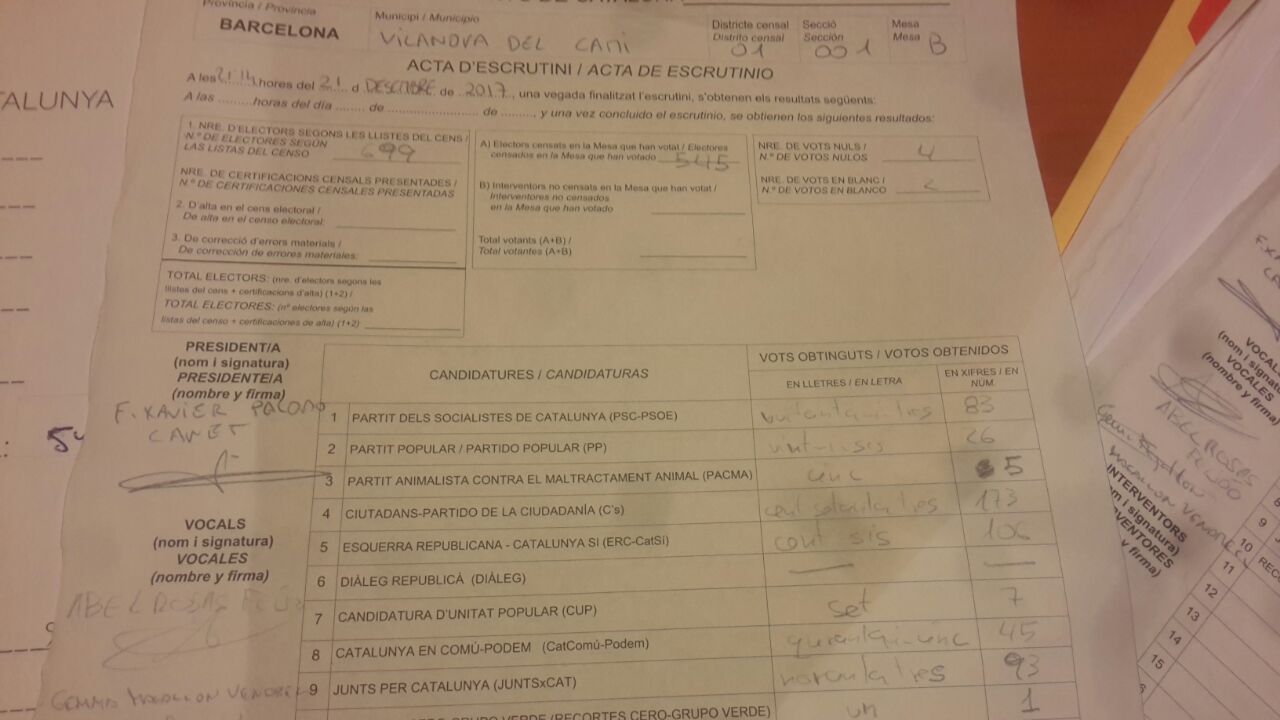 Província / Provincia
BARCELONA
Municipi / Municipio
VILANOVA DEL CAMI
Districte censal
Distrito censal
01
Secció
Sección
001
Mesa
Mesa B
ACTA D'ESCRUTINI / ACTA DE ESCRUTINIO
A les 21:14 hores del 21 d DESEMBRE de 2017, una vegada finalitzat l'escrutini, s'obtenen els resultats següents:
A las ......... horas del día ........ de ......................... de ........., y una vez concluido el escrutinio, se obtienen los siguientes resultados:
1. NRE. D'ELECTORS SEGONS LES LLISTES DEL CENS /
N.º DE ELECTORES SEGÚN
LAS LISTAS DEL CENSO 699
NRE. DE CERTIFICACIONS CENSALS PRESENTADES /
N.º DE CERTIFICACIONES CENSALES PRESENTADAS
2. D'alta en el cens electoral /
De alta en el censo electoral:
3. De correcció d'errors materials /
De corrección de errores materiales:
TOTAL ELECTORS: (nre. d'electors segons les
llistes del cens + certificacions d'alta) (1+2) /
TOTAL ELECTORES: (nº electores según las
listas del censo + certificaciones de alta) (1+2)
A) Electors censats en la Mesa que han votat / Electores
censados en la Mesa que han votado 545
B) Interventors no censats en la Mesa que han votat /
Interventores no censados
en la Mesa que han votado
Total votants (A+B) /
Total votantes (A+B)
NRE. DE VOTS NULS /
N.º DE VOTOS NULOS 4
NRE. DE VOTS EN BLANC /
N.º DE VOTOS EN BLANCO 2
PRESIDENT/A
(nom i signatura)
PRESIDENTE/A
(nombre y firma)
F. XAVIER PALOMO
CANET
VOCALS
(nom i signatura)
VOCALES
(nombre y firma)
ABEL ROSAS
GEMMA
CANDIDATURES / CANDIDATURAS
VOTS OBTINGUTS / VOTOS OBTENIDOS
EN LLETRES / EN LETRA
EN XIFRES / EN
NÚM.
1 PARTIT DELS SOCIALISTES DE CATALUNYA (PSC-PSOE) vuitantaitres 83
2 PARTIT POPULAR / PARTIDO POPULAR (PP) vint-i-sis 26
3 PARTIT ANIMALISTA CONTRA EL MALTRACTAMENT ANIMAL (PACMA) cinc 5
4 CIUTADANS-PARTIDO DE LA CIUDADANÍA (C's) cent setanta tres 173
5 ESQUERRA REPUBLICANA - CATALUNYA SÍ (ERC-CatSí) cent sis 106
6 DIÀLEG REPUBLICÀ (DIÀLEG) — —
7 CANDIDATURA D'UNITAT POPULAR (CUP) set 7
8 CATALUNYA EN COMÚ-PODEM (CatComú-Podem) 45
9 JUNTS PER CATALUNYA (JUNTSxCAT) noranta tres 93
GRUPO VERDE (RECORTES CERO-GRUPO VERDE) un 1
TALUNYA
VOCALS
(nom i signatura)
VOCALES
(nombre y firma)
INTERVENTORS
(nombre y firma)
9
10
11
12
13
14
15